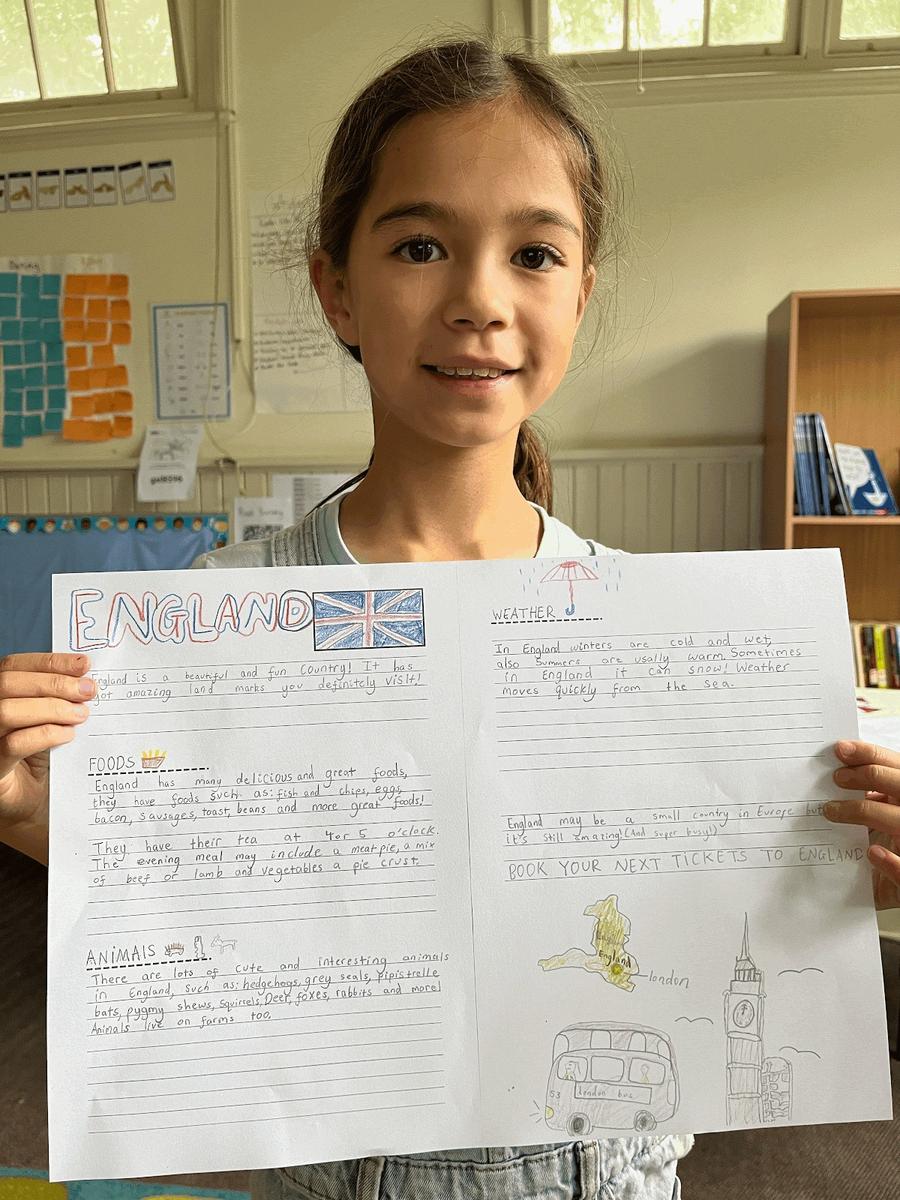 ENGLAND
England is a beautiful and fun Country! It has
got amazing land marks you definitely visit!
FOODS
England has many delicious and great foods,
they have foods such as: fish and chips, eggs,
bacon, sausages, toast, beans and more great foods!
They have their tea at 4 or 5 o'clock.
The evening meal may include a meat pie, a mix
of beef or lamb and vegetables a pie crust.
ANiMAlS
There are lots of cute and interesting animals
in England, such as: hedgehogs, grey seals, pipistrelle
bats, pygmy shews, squirrels, Deer, foxes, rabbits and more!
Animals live on farms too.
WEATHER
In England winters are cold and wet,
also Summers are usally warm. Sometimes
in England it can snow! Weather
moves quickly from the sea.
England may be a small country in Europe but
it's still amazing! (And super busy!)
BOOK YOUR NEXT TICKETS TO ENGLAND
England
london
53 london bus